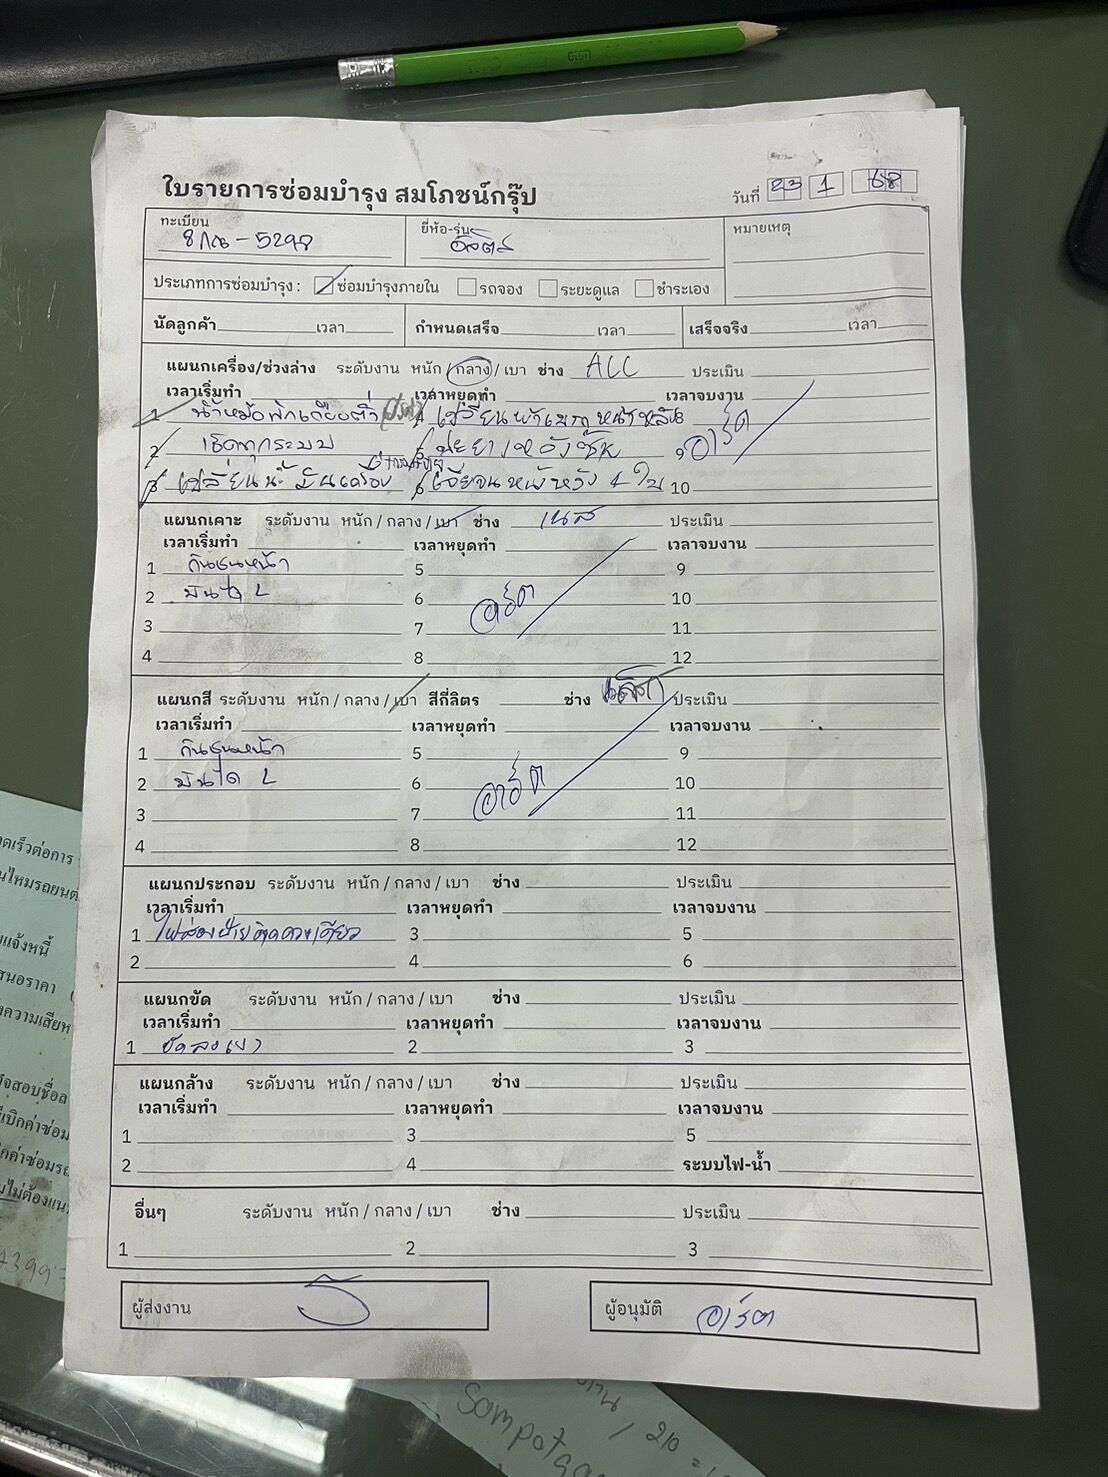 ใบรายการซ่อมบำรุง สมโภชน์กรุ๊ป
วันที่ 23 1 68
ทะเบียน ยี่ห้อ-รุ่น หมายเหตุ
-5298
ประเภทการซ่อมบำรุง : ซ่อมบำรุงภายใน รถจอง ระยะดูแล ชำระเอง
นัดลูกค้า เวลา กำหนดเสร็จ เวลา เสร็จจริง เวลา
แผนกเครื่อง/ช่วงล่าง ระดับงาน หนัก / กลาง / เบา ช่าง ALL ประเมิน
เวลาเริ่มทำ เวลาหยุดทำ เวลาจบงาน
1 น้ำหม้อพัก 4 เปลี่ยนผ้าเบรกหน้าหลัง
2 เช็คทุกระบบ 5 ปะยาง 9 อาร์ต
3 เปลี่ยนน้ำมันเครื่อง 6 เจียจานหน้าหลัง 4 ใบ 10
แผนกเคาะ ระดับงาน หนัก / กลาง / เบา ช่าง เนส ประเมิน
เวลาเริ่มทำ เวลาหยุดทำ เวลาจบงาน
1 กันชนหน้า 5 9
2 บันได L 6 10
อาร์ต
3 7 11
4 8 12
แผนกสี ระดับงาน หนัก / กลาง / เบา สีกี่ลิตร ช่าง ประเมิน
เวลาเริ่มทำ เวลาหยุดทำ เวลาจบงาน
1 กันชนหน้า 5 9
2 บันได L 6 10
อาร์ต
3 7 11
4 8 12
แผนกประกอบ ระดับงาน หนัก / กลาง / เบา ช่าง ประเมิน
เวลาเริ่มทำ เวลาหยุดทำ เวลาจบงาน
1 ไฟส่องป้ายติดดวงเดียว 3 5
2 4 6
แผนกขัด ระดับงาน หนัก / กลาง / เบา ช่าง ประเมิน
เวลาเริ่มทำ เวลาหยุดทำ เวลาจบงาน
1 ขัดลบ 2 3
แผนกล้าง ระดับงาน หนัก / กลาง / เบา ช่าง ประเมิน
เวลาเริ่มทำ เวลาหยุดทำ เวลาจบงาน
1 3 5
2 4 ระบบไฟ-น้ำ
อื่นๆ ระดับงาน หนัก / กลาง / เบา ช่าง ประเมิน
1 2 3
ผู้ส่งงาน ผู้อนุมัติ อาร์ต